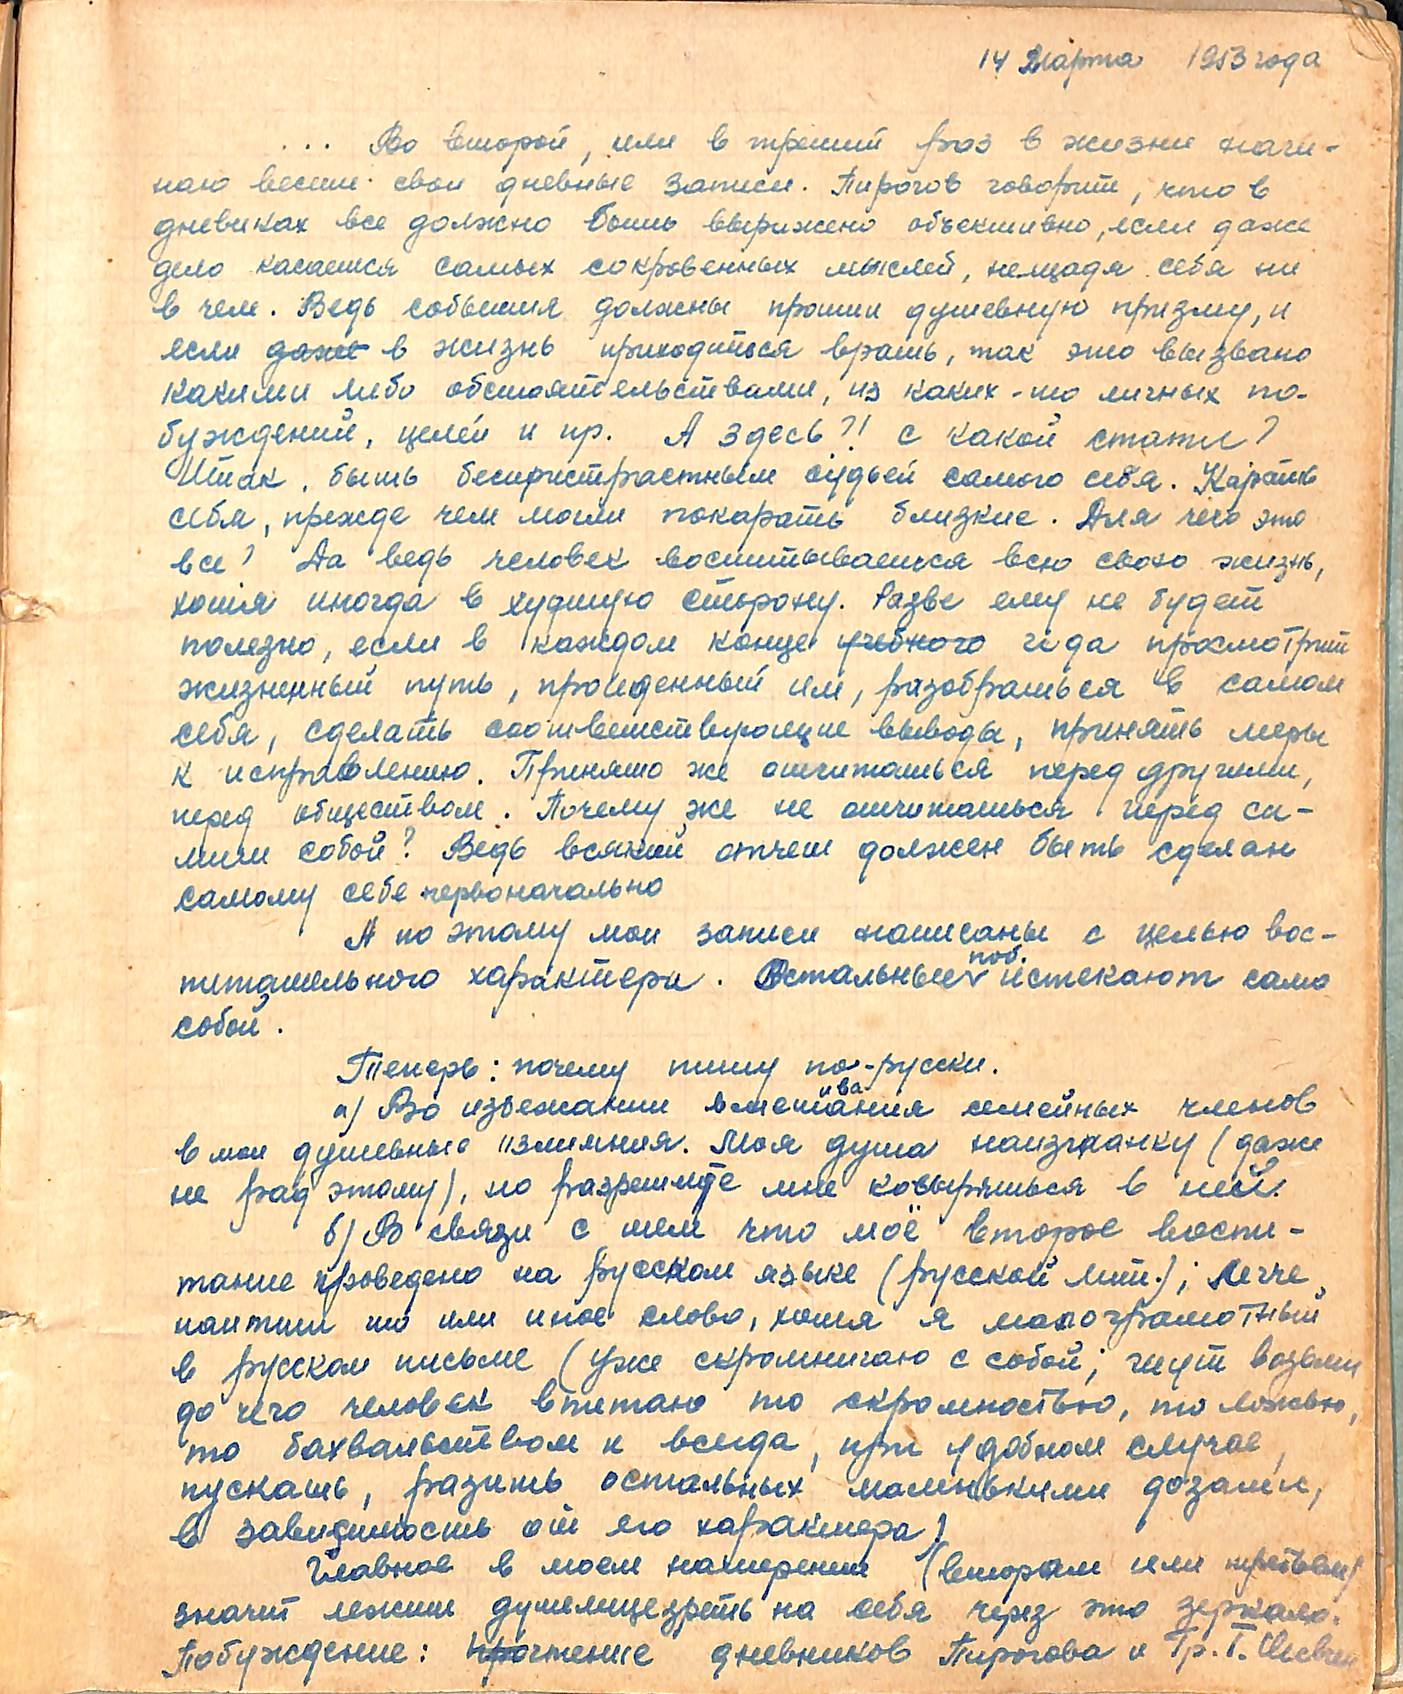 14 Марта 1953 года
... Во второй, или в третий раз в жизни начи-
наю вести свои дневные записи. Пирогов говорит, что в
дневиках все должно быть выражено объективно, если даже
дело касается самых сокровенных мыслей, нещадя себя ни
в чем. Ведь события должны пройти душевную призму, и
если даже в жизнь приходиться врать, так это вызвано
какими либо обстоятельствами, из каких-то личных по-
буждений, целей и пр. А здесь?! с какой стати?
Итак, быть беспристрастным судьей самого себя. Карать
себя, прежде чем могли покарать близкие. Для чего это
все? Да ведь человек воспитывается всю свою жизнь,
хотя иногда в худшую сторону. Разве ему не будет
полезно, если в каждом конце учебного года просмотрит
жизненный путь, пройденный им, разобраться в самом
себя, сделать соответствующие выводы, принять меры
к исправлению. Принято же отчитаться перед другими,
перед обществом. Почему же не отчитаться перед са-
мим собой? Ведь всякий отчет должен быть сделан
самому себе первоначально
А по этому мои записи написаны с целью вос-
питательного характера. Остальные поб. истекают само
собой.
Теперь: почему пишу по-русски.
а) Во избежании вмешивания семейных членов
в мои душевные излияния. Моя душа наизнанку (даже
не рад этому), но разрешите мне ковыряться в ней.
б) В связи с тем что моё второе воспи-
тание проведено на русском языке (русской лит.); легче
найти то или иное слово, хотя я малограмотный
в русском письме (Уже скромничаю с собой; возьми
до чего человек впитано то скромностью, то ложью,
то бахвальством и всегда, при удобном случае,
пускать, разить остальных маленькими дозами,
в зависимость от его характера)
Главное в моем намерении (втором или третьем)
значит лежит душелицезреть на себя через это зеркало.
Побуждение: прочтение дневников Пирогова и Гр. Т. Шевчен